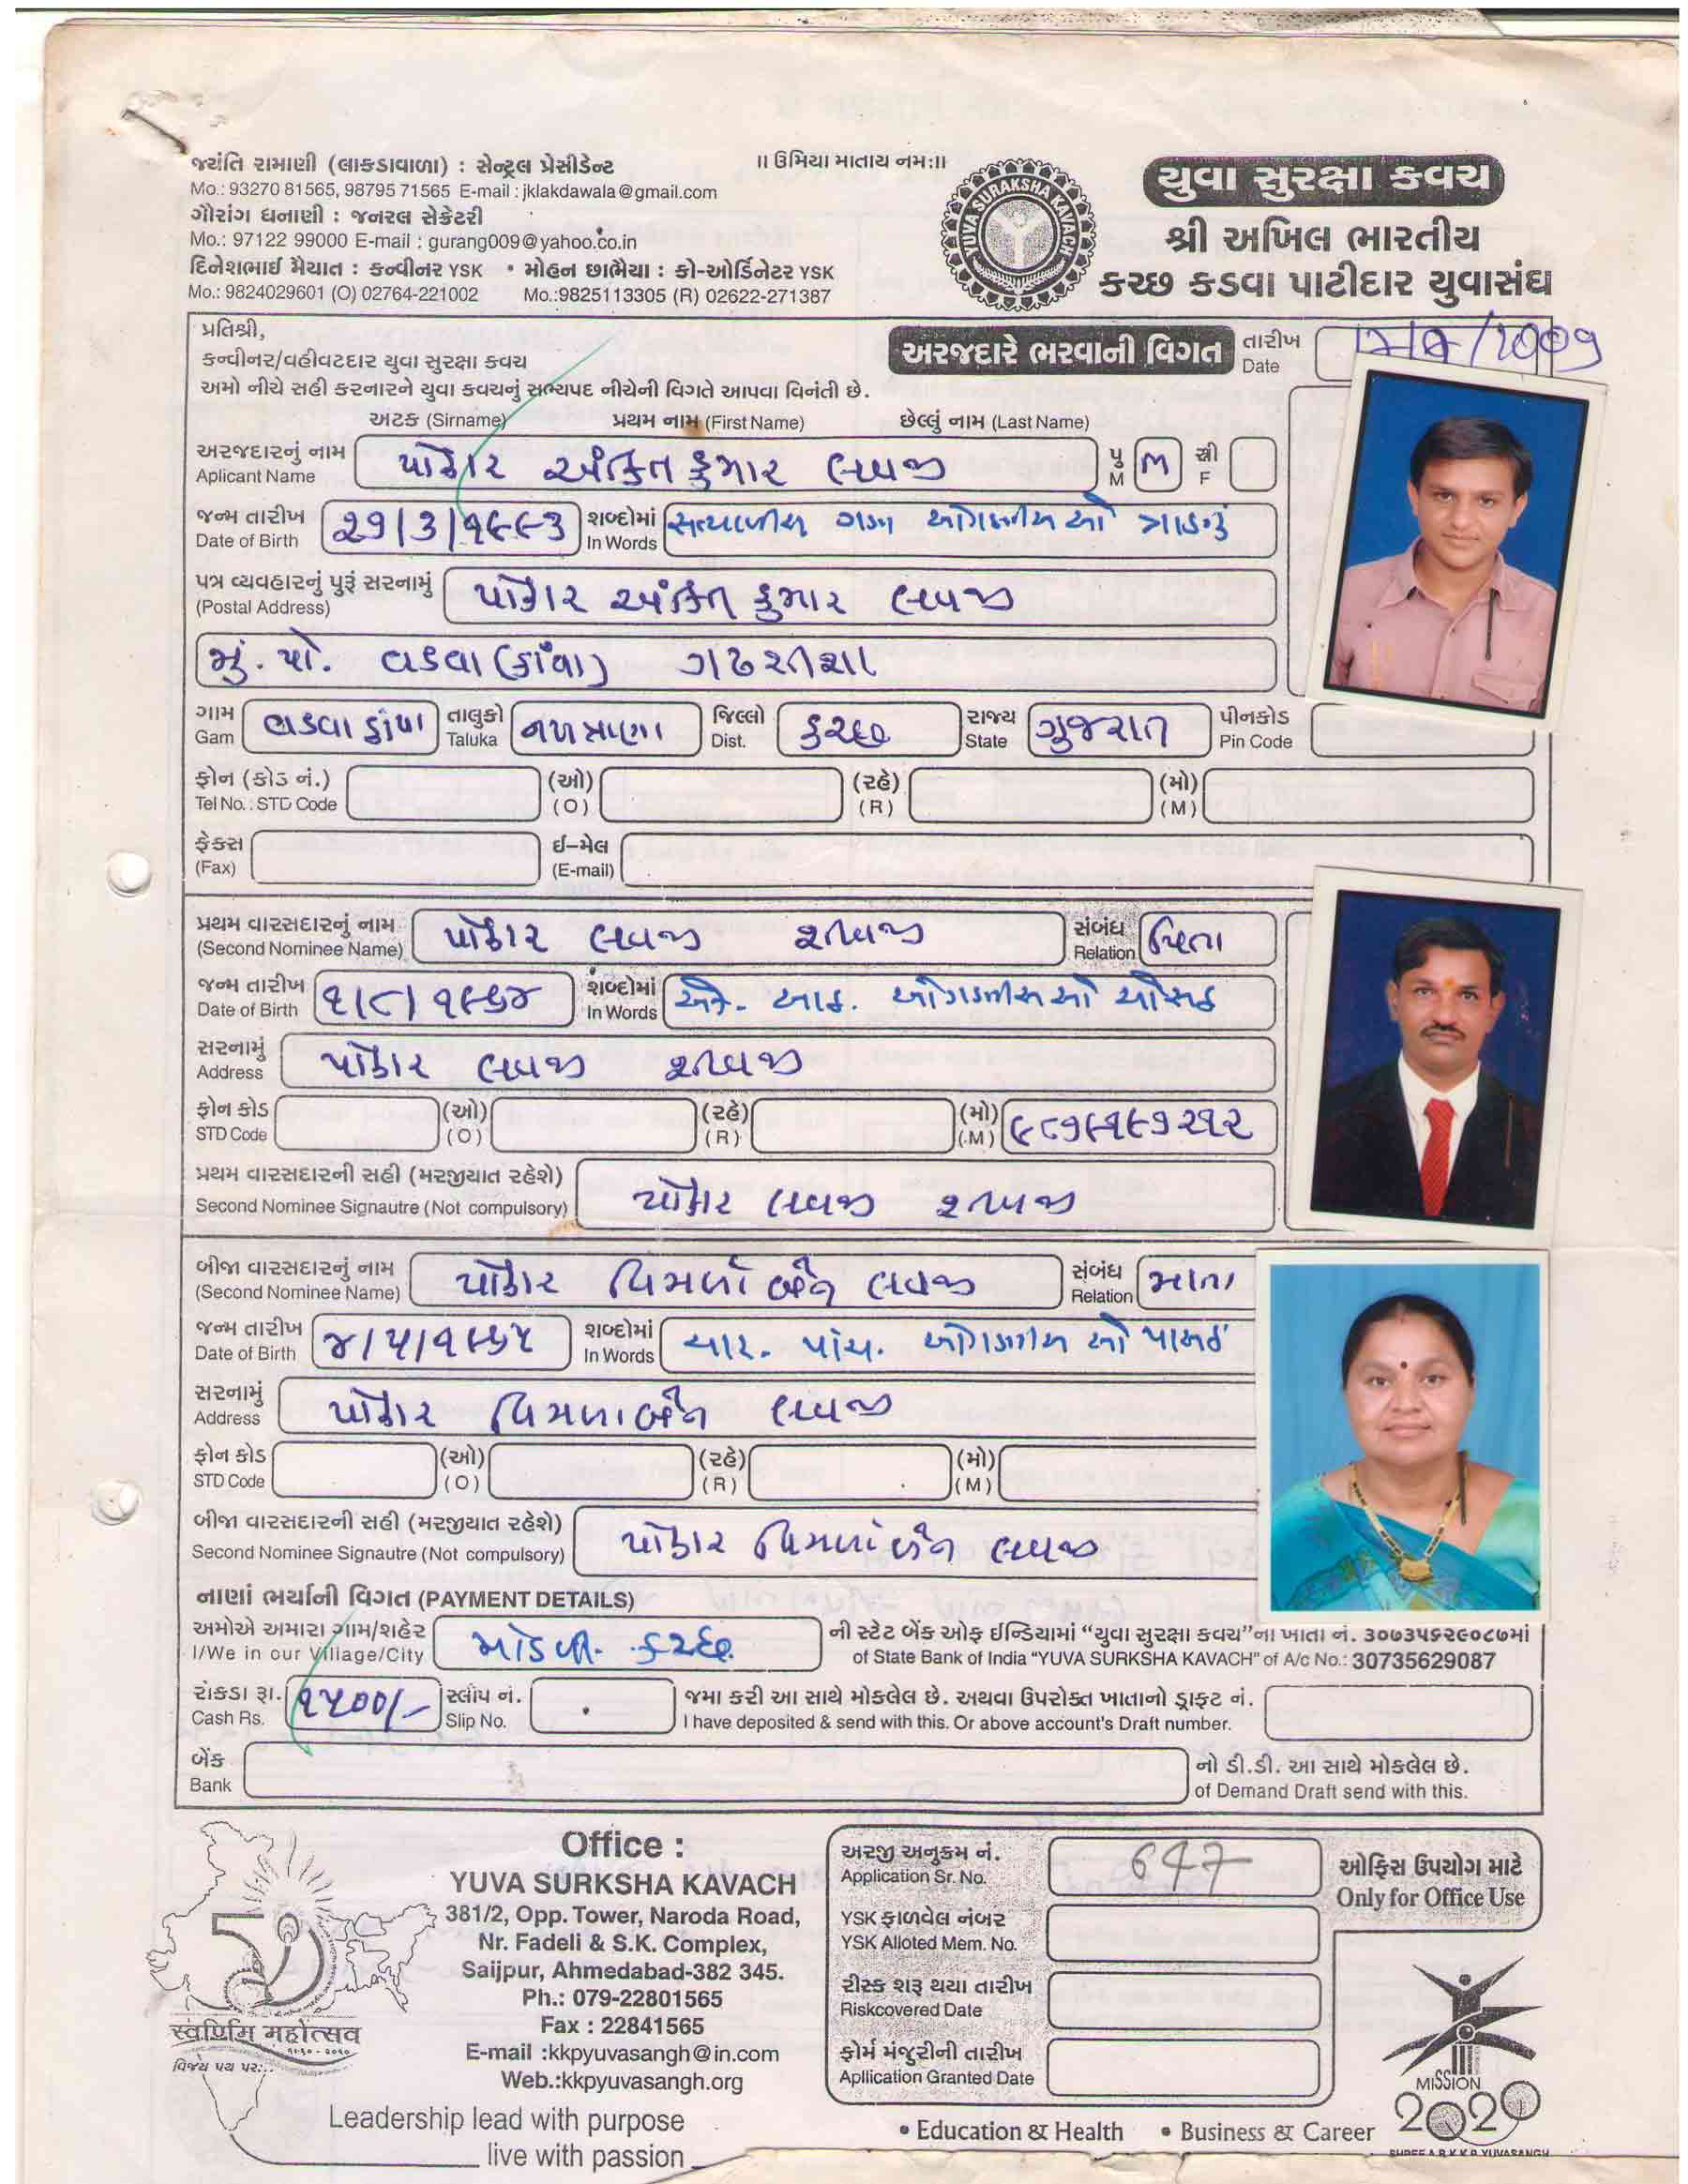 જયંતિ રામાણી (લાકડાવાળા) : સેન્ટ્રલ પ્રેસીડેન્ટ
Mo.: 93270 81565, 98795 71565 E-mail : jklakdawala@gmail.com
ગૌરાંગ ધનાણી : જનરલ સેક્રેટરી
Mo.: 97122 99000 E-mail : gurang009@yahoo.co.in
દિનેશભાઈ મૈયાત : કન્વીનર YSK • મોહન છાભૈયા : કો-ઓર્ડિનેટર YSK
Mo.: 9824029601 (O) 02764-221002 Mo.:9825113305 (R) 02622-271387
॥ ઉમિયા માતાય નમઃ॥
YUVA SURAKSHA KAVACH
યુવા સુરક્ષા કવચ
શ્રી અખિલ ભારતીય
કચ્છ કડવા પાટીદાર યુવાસંઘ
પ્રતિશ્રી,
કન્વીનર/વહીવટદાર યુવા સુરક્ષા કવચ
અમો નીચે સહી કરનારને યુવા કવચનું સભ્યપદ નીચેની વિગતે આપવા વિનંતી છે.
અરજદારે ભરવાની વિગત
તારીખ
Date
અટક (Sirname) પ્રથમ નામ (First Name) છેલ્લું નામ (Last Name)
અરજદારનું નામ
Aplicant Name
પોકાર અંકિતકુમાર લવજી
પુ M M સ્ત્રી F
જન્મ તારીખ
Date of Birth
૨૧/3/૧૯૯૩
શબ્દોમાં
In Words
પત્ર વ્યવહારનું પુરૂં સરનામું
(Postal Address)
પોકાર અંકિતકુમાર લવજી
મું. પો. વડવા (કાંયા) ગઢશીશા
ગામ
Gam
વડવા કાંયા
તાલુકો
Taluka
નખત્રાણા
જિલ્લો
Dist.
કચ્છ
રાજ્ય
State
ગુજરાત
પીનકોડ
Pin Code
ફોન (કોડ નં.) (ઓ) (રહે) (મો)
Tel No. : STD Code (O) (R) (M)
ફેક્સ ઈ-મેલ
(Fax) (E-mail)
પ્રથમ વારસદારનું નામ
(Second Nominee Name)
પોકાર લવજી શીવજી
સંબંધ
Relation
પિતા
જન્મ તારીખ
Date of Birth
૧/૮/૧૯૬૪
શબ્દોમાં
In Words
એક. આઠ. ઓગણીસઓ ચોસઠ
સરનામું
Address
પોકાર લવજી શીવજી
ફોન કોડ (ઓ) (રહે) (મો)
STD Code (O) (R) (M)
પ્રથમ વારસદારની સહી (મરજીયાત રહેશે)
Second Nominee Signautre (Not compulsory)
પોકાર લવજી શીવજી
બીજા વારસદારનું નામ
(Second Nominee Name)
પોકાર વિમળાબેન લવજી
સંબંધ
Relation
માતા
જન્મ તારીખ
Date of Birth
૪/૫/૧૯૬૫
શબ્દોમાં
In Words
ચાર. પાંચ. ઓગણીસ ઓ પાસઠ
સરનામું
Address
પોકાર વિમળાબેન લવજી
ફોન કોડ (ઓ) (રહે) (મો)
STD Code (O) (R) (M)
બીજા વારસદારની સહી (મરજીયાત રહેશે)
Second Nominee Signautre (Not compulsory)
પોકાર વિમળાબેન લવજી
નાણાં ભર્યાની વિગત (PAYMENT DETAILS)
અમોએ અમારા ગામ/શહેર
I/We in our Village/City
માંડવી. કચ્છ
ની સ્ટેટ બેંક ઓફ ઈન્ડિયામાં “યુવા સુરક્ષા કવચ”ના ખાતા નં. ૩૦૭૩૫૬૨૯૦૮૭માં
of State Bank of India “YUVA SURKSHA KAVACH” of A/c No.: 30735629087
રોકડા રૂા.
Cash Rs.
૧૫00/-
સ્લીપ નં.
Slip No.
જમા કરી આ સાથે મોકલેલ છે. અથવા ઉપરોક્ત ખાતાનો ડ્રાફ્ટ નં.
I have deposited & send with this. Or above account's Draft number.
બેંક
Bank
નો ડી.ડી. આ સાથે મોકલેલ છે.
of Demand Draft send with this.
Office :
YUVA SURKSHA KAVACH
381/2, Opp. Tower, Naroda Road,
Nr. Fadeli & S.K. Complex,
Saijpur, Ahmedabad-382 345.
Ph.: 079-22801565
Fax : 22841565
E-mail :kkpyuvasangh@in.com
Web.:kkpyuvasangh.org
50
स्वर्णिम महोत्सव
૧૯૬૦ - ૨૦૧૦
વિજય પથ પર...
Leadership lead with purpose
live with passion
અરજી અનુક્રમ નં.
Application Sr. No.
647
ઓફિસ ઉપયોગ માટે
Only for Office Use
YSK ફાળવેલ નંબર
YSK Alloted Mem. No.
રીસ્ક શરૂ થયા તારીખ
Riskcovered Date
ફોર્મ મંજુરીની તારીખ
Apllication Granted Date
• Education & Health • Business & Career
MISSION
2020
SHREE A.B.K.K.P. YUVASANGH